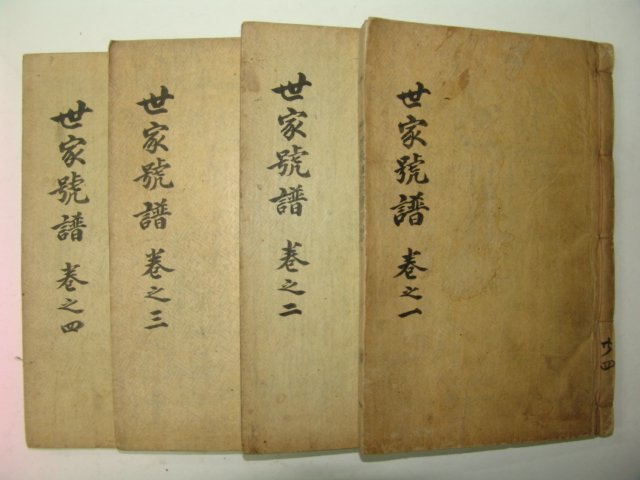 世家號譜 卷之一
世家號譜 卷之二
世家號譜 卷之三
世家號譜 卷之四